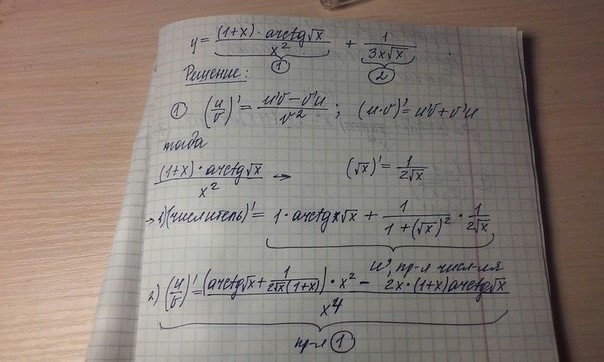 y = \frac{(1+x) \cdot arctg\sqrt{x}}{x^2} + \frac{1}{3x\sqrt{x}}
① ②
Решение:
① (\frac{u}{v})' = \frac{u'v - v'u}{v^2} ; (u \cdot v)' = u'v + v'u
тогда
\frac{(1+x) \cdot arctg\sqrt{x}}{x^2} → (\sqrt{x})' = \frac{1}{2\sqrt{x}}
→ 1) (числитель)' = 1 \cdot arctg\sqrt{x} + \frac{1}{1+(\sqrt{x})^2} \cdot \frac{1}{2\sqrt{x}}
u' пр-я числ-ля
2) (\frac{u}{v})' = \frac{(arctg\sqrt{x} + \frac{1}{2\sqrt{x}(1+x)}) \cdot x^2 - 2x \cdot (1+x) arctg\sqrt{x}}{x^4}
пр-я ①